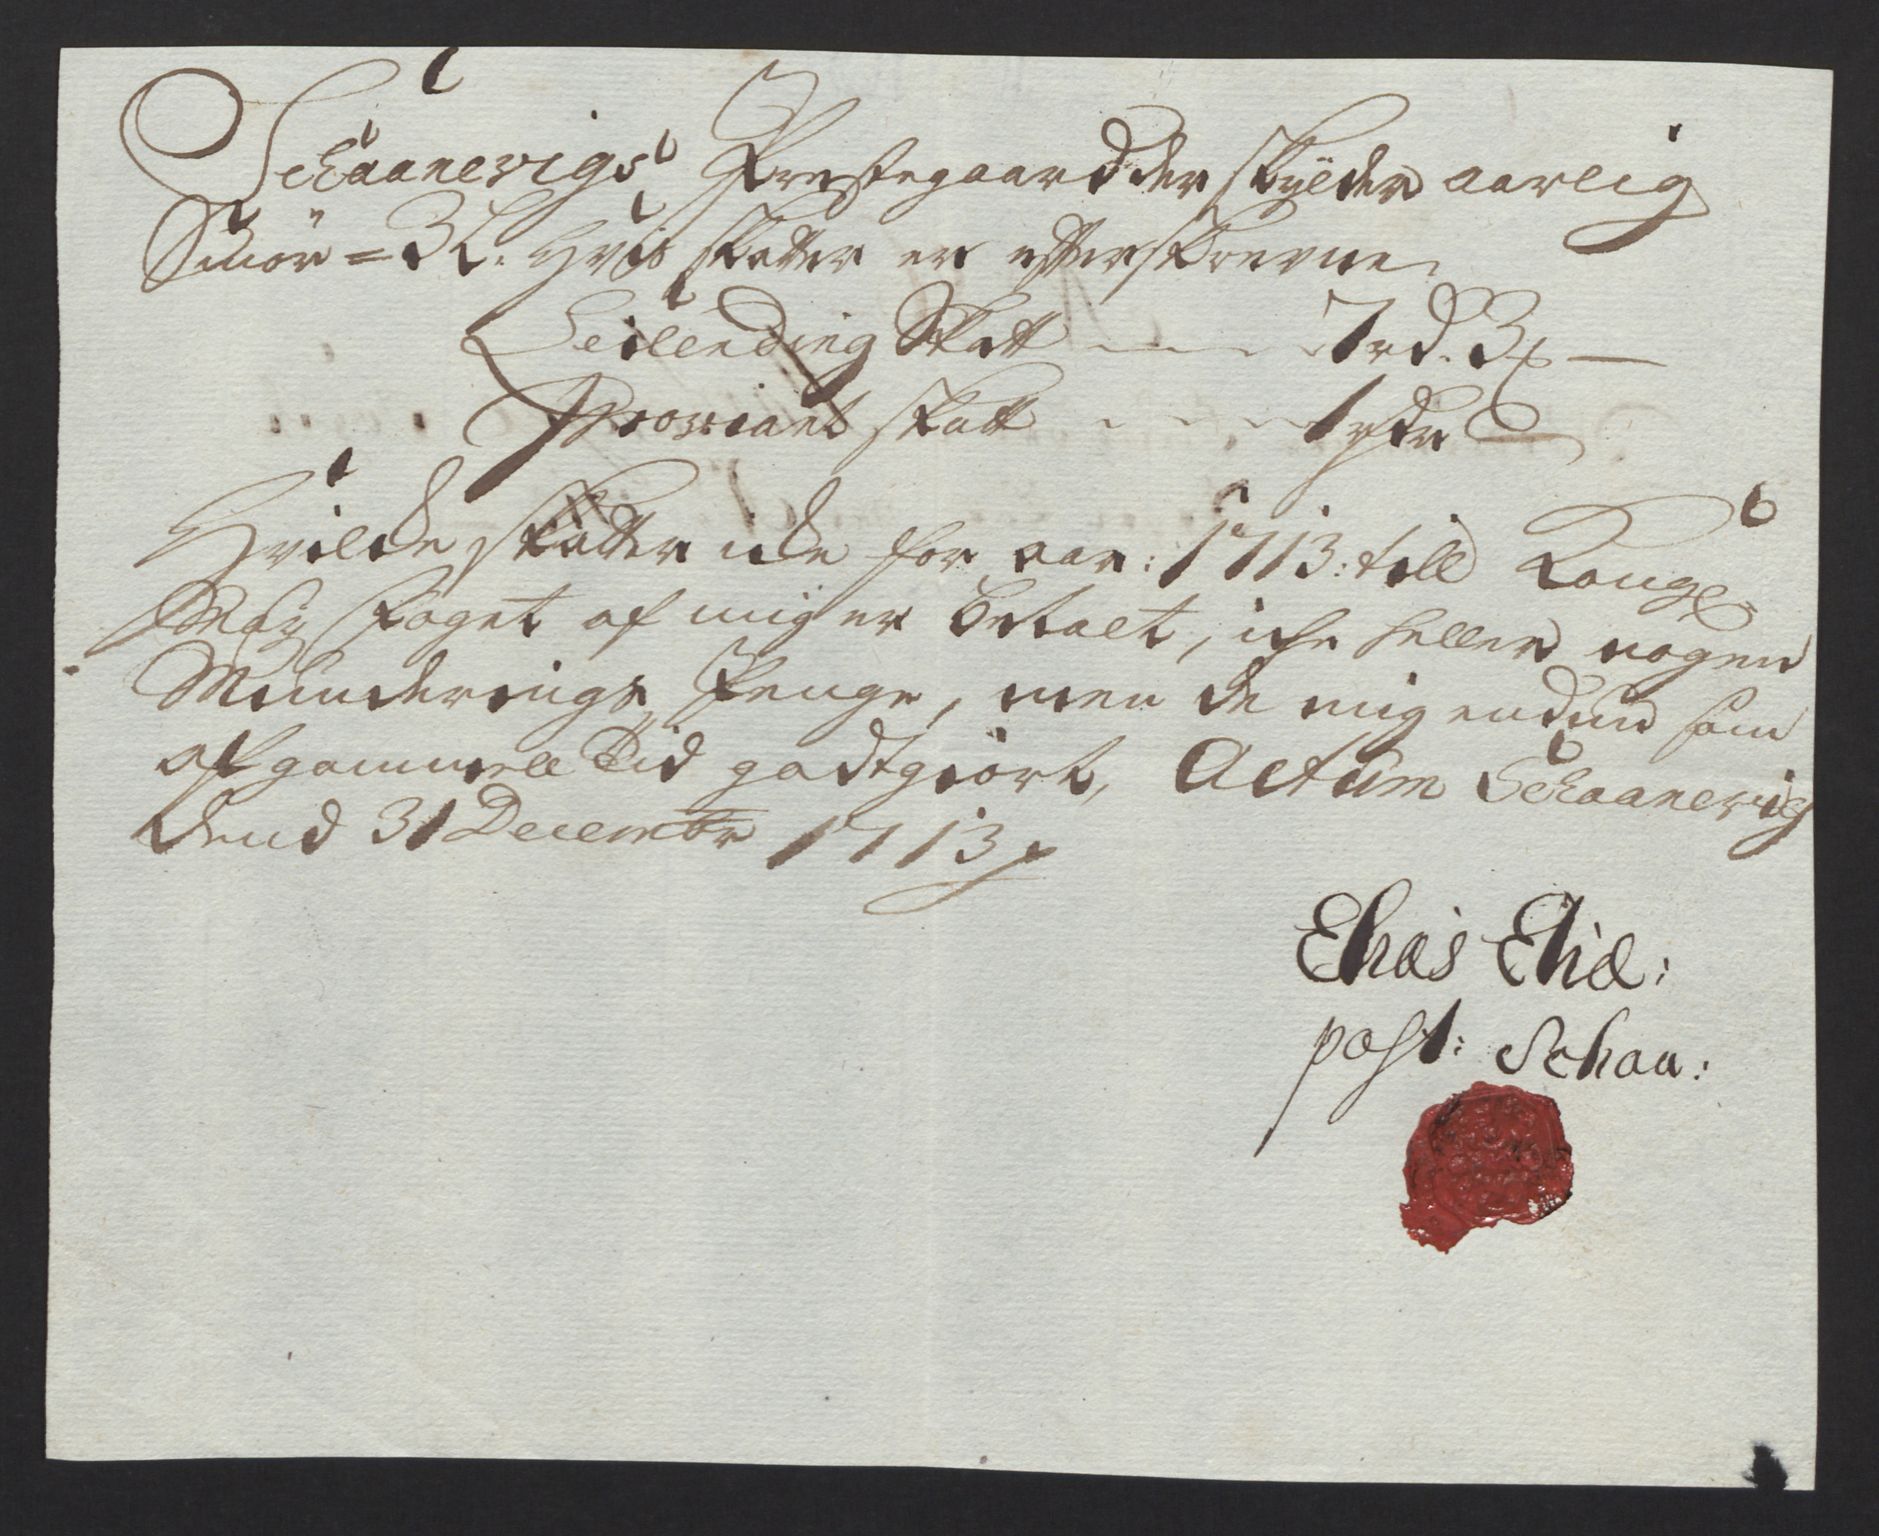 Schaanevigs Prestegaard der skÿlder aarlig
Smör = 3 L. Hvis skatter er efterskrevne
Leilending Skatt 7 rd. 3
Proviant skatt 1 rdr
Hvilde skatter iche for aar: 1713: till Kongl
May Foget af mig er betalt, iche heller nogen
Munderings Penge, men de mig endnu som
af gammell Tid godtgiört, Actum Schaanevig
dend 31 Decembr 1713
Elias Eliæ:
past: Schaa: